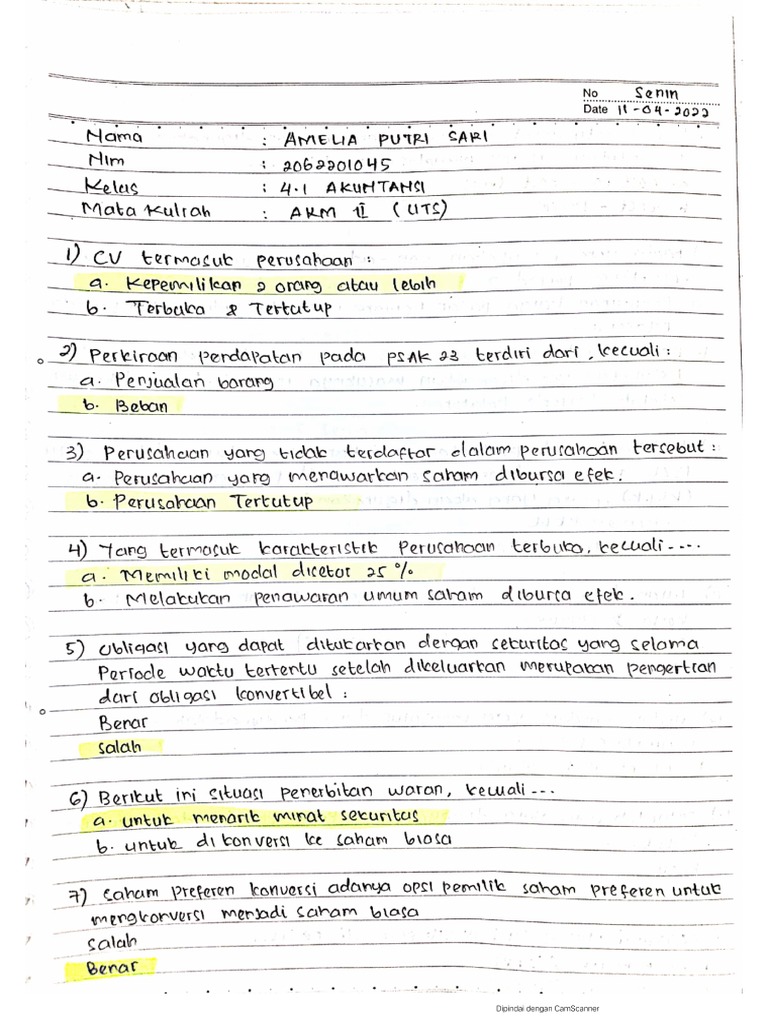 No Senin
Date 11-04-2022
Nama : AMELIA PUTRI SARI
Nim : 2062201045
Kelas : 4.1 AKUNTANSI
Mata Kuliah : AKM II (UTS)
1) CV termasuk perusahaan :
a. Kepemilikan 2 orang atau lebih
b. Terbuka & Tertutup
2) Perkiraan pendapatan pada PSAK 23 terdiri dari, kecuali :
a. Penjualan barang
b. Beban
3) Perusahaan yang tidak terdaftar dalam perusahaan tersebut :
a. Perusahaan yang menawarkan saham dibursa efek.
b. Perusahaan Tertutup
4) Yang termasuk karakteristik Perusahaan terbuka, kecuali ....
a. Memiliki modal disetor 25 %
b. Melakukan penawaran umum saham dibursa efek.
5) Obligasi yang dapat ditukarkan dengan sekuritas yang selama
Periode waktu tertentu setelah dikeluarkan merupakan pengertian
dari obligasi konvertibel :
Benar
Salah
6) Berikut ini situasi penerbitan waran, kecuali ...
a. untuk menarik minat sekuritas
b. untuk dikonversi ke saham biasa
7) Saham preferen konversi adanya opsi pemilik saham preferen untuk
mengkonversi menjadi saham biasa
Salah
Benar
Dipindai dengan CamScanner